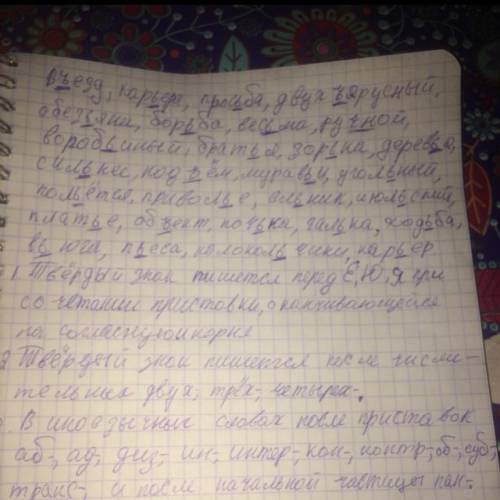 Въезд, карьера, просьба, двухъярусный,
обезьяна, борьба, весьма, ручной,
воробьиный, братья, зорька, деревья,
сильнее, подъём, муравьи, угольный,
польётся, приволье, ельник, июльский,
платье, объект, почка, галька, ходьба,
вьюга, пьеса, колокольчики, карьер
1. Твёрдый знак пишется перед Е, Ю, Я при
сочетании приставки, оканчивающейся
на согласную и корня
2. Твёрдый знак пишется после числи-
тельных двух-, трёх-, четырех-.
В иноязычных словах после приставок
аб-, ад-, диз-, ин-, интер-, кон-, контр-, об-, суб-,
транс-, и после начальной частицы пан-.